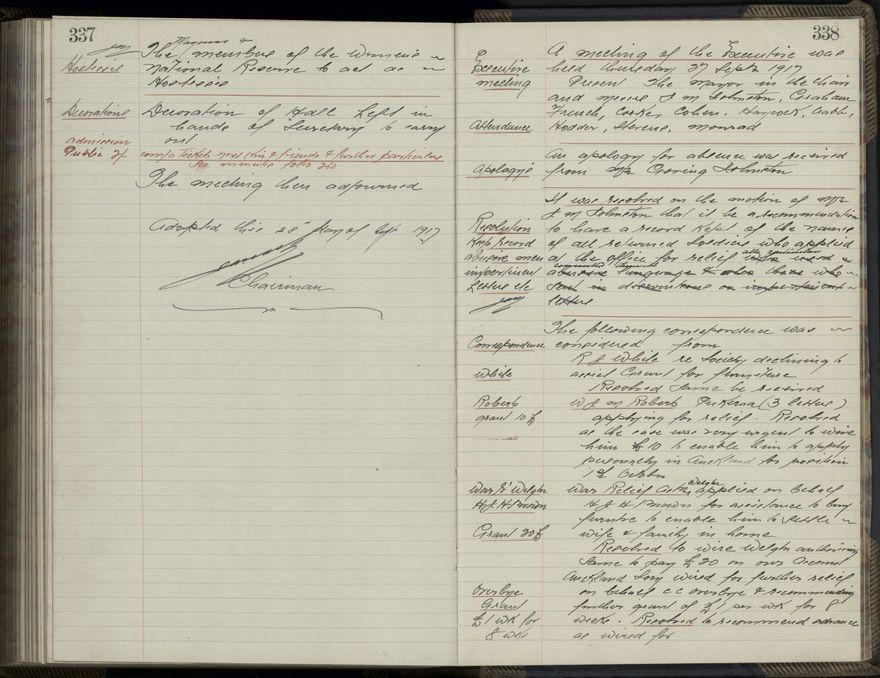 337
Hostesses
The members of the Women's
National Reserve to act as
Hostesses
Decorations
Decoration of Hall Left in
hands of Secretary to carry
out
admission
Public
The meeting then adjourned
Adopted this 28th day of Sept 1917
Chairman
338
Executive
meeting
A meeting of the Executive was
held Thursday 27 Septr 1917
Present The Mayor in the Chair
and Messrs J M Johnston,
French, Cohen,
Attendance
Apologys
An apology for absence was received
from Mr Johnston
It was resolved on the motion of Mr
J M Johnston that it be a recommendation
Resolution
to have a record kept of the names
Keep Record
of all returned Soldiers who applied
abusive men
at the office for relief
impertinent
abusive language
Letters etc
letters
The following correspondence was
Correspondence
considered from
White
R J White re Society declining to
Grant for furniture
Resolved same be received
Roberts
grant 10 £
W J M Roberts (3 letters)
applying for relief. Resolved
as the case was very urgent to wire
him £10 to enable him to apply
personally in Auckland for position
1st October
War R Welgtn
War Relief Assn Welgtn applied on behalf
H J H Brown
H J H Brown for assistance to buy
furnre to enable him to settle
Grant 20 £
wife & family in home
Resolved to wire Welgtn authorising
same to pay £20 on our account
Auckland Assn wired for further relief
Overbye
on behalf C C Overbye & recommending
Grant
further grant of £1 per wk for 8
£1 wk for
weeks. Resolved to recommend advance
8 wks
as wired for